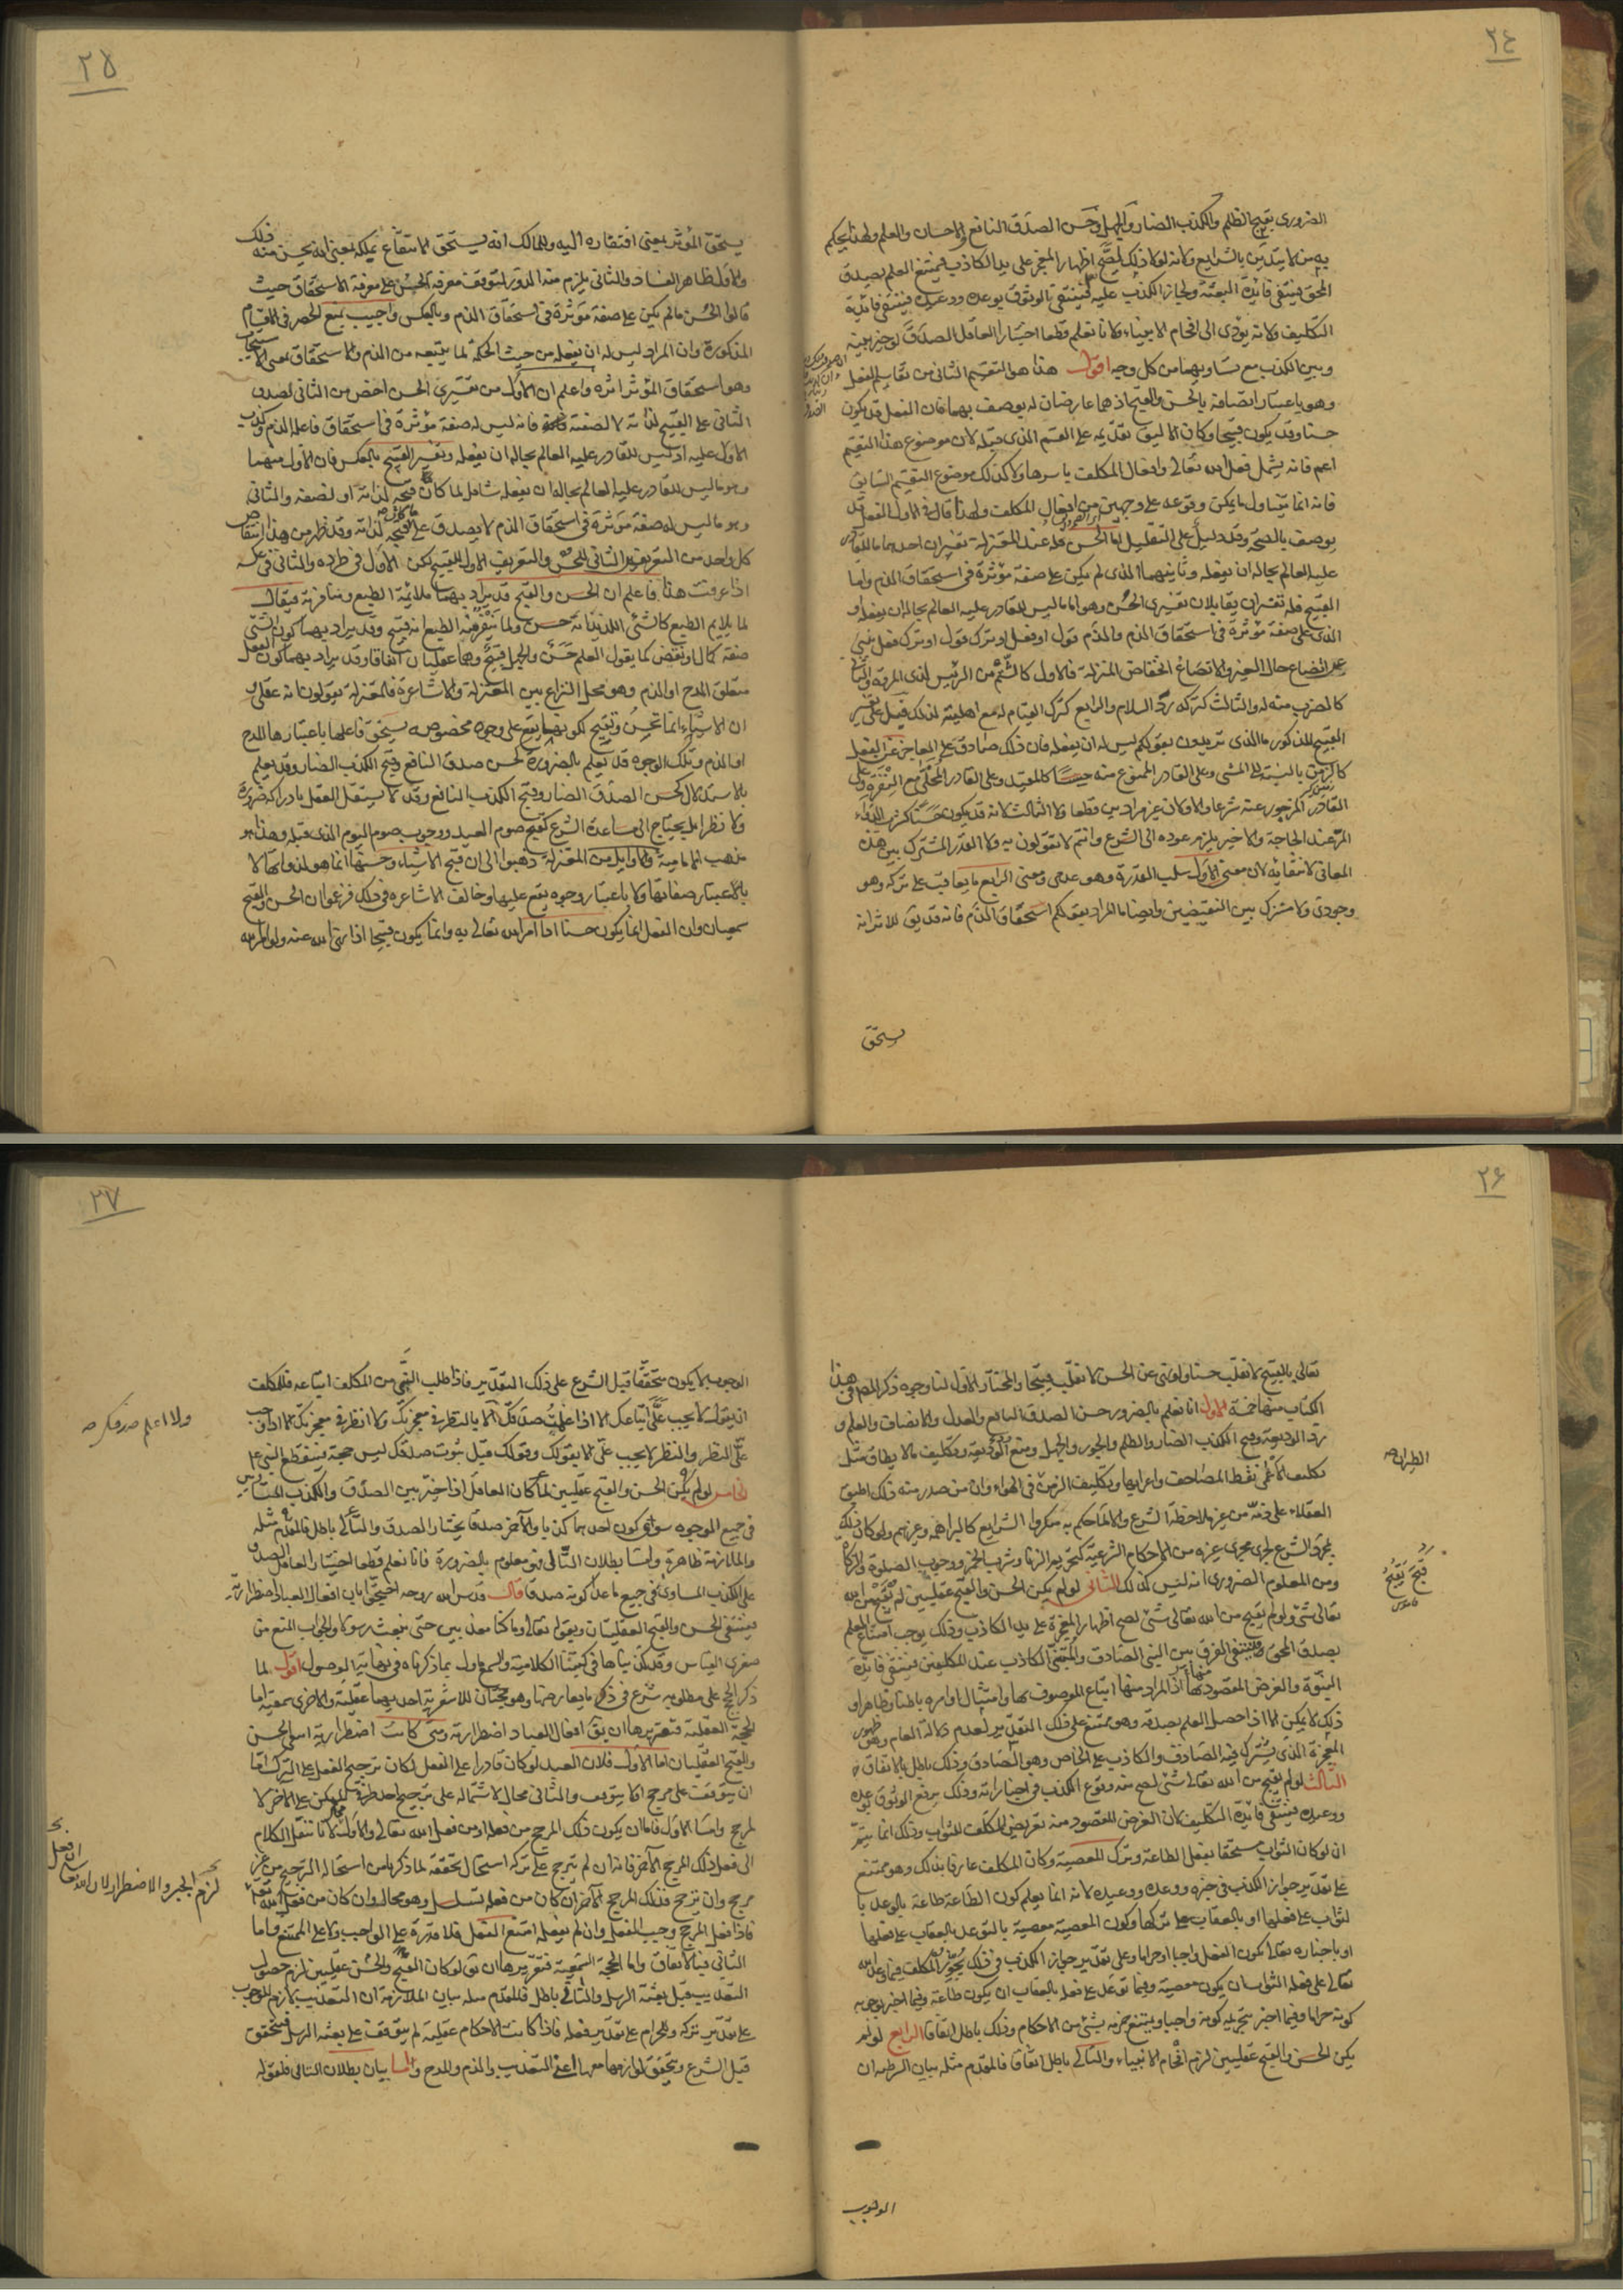 ٢٤
الضرورى بقبح الظلم والكذب الضار والجهل وحسن الصدق النافع والاحسان والعلم ولهذا يحكم
به من لا يتدين بالشرايع ولانه لولا ذلك لصح اظهار المعجز على يد الكاذب فيمتنع العلم بصدق
المحق فينتفى فائدة البعثة ولجاز الكذب عليه فينتفى الوثوق بوعده ووعيده فينتفى فائدة
التكليف ولانه يؤدى الى افحام الانبياء ولانا نعلم قطعا اختيار العاقل الصدق لو خير بينه
وبين الكذب مع تساويهما من كل وجه اقول هذا هو التقسيم الثانى من تقاسيم الفعل
وهو باعتبار اتصافه بالحسن والقبح اذ هما عارضان له يوصف بهما فان الفعل قد يكون
حسنا وقد يكون قبيحا وكان الاليق تقديمه على القسم الذى قبله لان موضوع هذا التقسيم
اعم فانه يشمل فعل الله تعالى وافعال المكلف باسرها ولا كذلك موضوع التقسيم السابق
فانه انما يتناول ما يمكن وقوعه على وجهين من افعال المكلف ولهذا قال فى الاول الفعل قد
يوصف بالصحة وقد دليل على التقليل اما الحسن فله عند المعتزلة تفسيران احدهما ما للقادر
عليه العالم بحاله ان يفعله وثانيهما الذى لم يكن على صفة مؤثرة فى استحقاق الذم واما
القبيح فله تفسيران يقابلان تفسيرى الحسن وهو اما ما ليس للقادر عليه العالم بحاله ان يفعله او
الذى على صفة مؤثرة فى استحقاق الذم والذم قول او فعل او ترك قول او ترك فعل ينبئ
عن اتضاع حال الغير والاتضاع انخفاض المنزلة فالاول كالشتم من الرئيس لذى المروة والثانى
كالضرب منه له والثالث كتركه رد السلام والرابع كترك القيام له مع اهليته لذلك قيل على تفسير
القبيح المذكور ما الذى تريدون بقولكم ليس له ان يفعله فان ذلك صادق على العاجز عن الفعل
كالزمن بالنسبة الى المشى وعلى القادر الممنوع منه حسا كالمقيد وعلى القادر المخلى مع النفرة وعلى
القادر المزجور عنه شرعا والاولان غير مرادين قطعا ولا الثالث لانه قد يكون حسنا كشرب الدواء
المر عند الحاجة والاخير يلزم عوده الى الشرع وانتم لا تقولون به ولا القدر المشترك بين هذه
المعانى لانتفائه لان معنى الاول سلب القدرة وهو عدمى ومعنى الرابع ما يعاقب على تركه وهو
وجودى ولا مشترك بين النقيضين وايضا ما المراد بقولكم استحقاق الذم فانه قد يق للاثر انه
يستحق
٢٥
يستحق المؤثر بمعنى افتقاره اليه وللمالك انه يستحق الانتفاع بملكه بمعنى انه يحسن منه ذلك
والاول ظاهر الفساد والثانى يلزم منه الدور لتوقف معرفة الحسن على معرفة الاستحقاق حيث
قالوا الحسن ما لم يكن على صفة مؤثرة فى استحقاق الذم وبالعكس واجيب بمنع الحصر فى الاقسام
المذكورة وان المراد ليس له ان يفعله من حيث الحكمة لما يتبعه من الذم والاستحقاق بمعنى الاستيجاب
وهو استحقاق المؤثر اثره واعلم ان الاول من تفسيرى الحسن اخص من الثانى لصدق
الثانى على القبيح لذاته لا لصفته فانه ليس له صفة مؤثرة فى استحقاق فاعله الذم وكذب
الاول عليه اذ ليس للقادر عليه العالم بحاله ان يفعله وتفسير القبيح بالعكس فان الاول منهما
وهو ما ليس للقادر عليه العالم بحاله ان يفعله شامل لما كان قبحه لذاته او لصفته والثانى
وهو ما ليس له صفة مؤثرة فى استحقاق الذم لا يصدق على ما كان قبحه لذاته وقد ظهر من هذا انتقاض
كل واحد من التعريفين الثانى للحسن والتعريف الاول للقبيح لكن الاول فى طرده والثانى فى عكسه
اذا عرفت هذا فاعلم ان الحسن والقبح قد يراد بهما ملائمة الطبع ومنافرته فيقال
لما يلايم الطبع كالشئ اللذيذ انه حسن ولما ينفر منه الطبع انه قبيح وقد يراد بهما كون الشئ
صفة كمال او نقص كما يقول العلم حسن والجهل قبيح وهما عقليان اتفاقا وقد يراد بهما كون الفعل
متعلق المدح او الذم وهو محل النزاع بين المعتزلة والاشاعرة فالمعتزلة يقولون انه عقلى و
ان الاشياء انما تحسن وتقبح لكونها يقع على وجوه مخصوصه يستحق فاعلها باعتبارها المدح
او الذم وتلك الوجوه قد يعلم بالضرورة كحسن صدق النافع وقبح الكذب الضار وقد يعلم
بالاستدلال كحسن الصدق الضار وقبح الكذب النافع وقد لا يستقل العقل بادراكه ضرورة
ولا نظرا بل يحتاج الى مساعدة الشرع كقبح صوم العيد ووجوب صوم اليوم الذى قبله وهذا هو
مذهب الامامية والاوايل من المعتزلة ذهبوا الى ان قبح الاشياء وحسنها انما هو لذواتها لا
بالاعتبار صفاتها ولا باعتبار وجوه يقع عليها وخالف الاشاعره فى ذلك فزعموا ان الحسن والقبح
سمعيان وان الفعل انما يكون حسنا اذا امر الله تعالى به وانما يكون قبيحا اذا نهى الله عنه ولو امر الله
٢٦
تعالى بالقبيح لانقلب حسنا ولو نهى عن الحسن لانقلب قبيحا والمختار الاول لنا وجوه ذكر المص فى هذا
الكتاب منها خمسة الاول انا نعلم بالضرورة حسن الصدق النافع والعدل والانصاف والعلم و
رد الوديعة وقبح الكذب الضار والظلم والجور والجهل ومنع الوديعة وتكليف ما لا يطاق مثل
تكليف الاعمى نقط المصاحف واعرابها وتكليف الزمن فى الهواء وان من صدر منه ذلك اطبق
العقلاء على ذمه من غير ملاحظة الشرع والا لما حكم به منكروا الشرايع كالبراهمة وغيرهم ولو كان ذلك
بمجرد الشرع لجرى مجرى غيره من الاحكام الشرعية كتحريم الزنا وشرب الخمر ووجوب الصلوة والزكاة
ومن المعلوم الضرورى انه ليس كذلك الثانى لو لم يكن الحسن والقبح عقليين لم يقبح من الله
تعالى شئ ولو لم يقبح من الله تعالى شئ لصح اظهار المعجزة على يد الكاذب وذلك يوجب امتناع العلم
بصدق المحق فينتفى الفرق بين النبى الصادق والمتنبى الكاذب عند المكلفين فينتفى فائدة
النبوة والغرض المقصود منها اذ المراد منها اتباع الموصوف بها وامتثال اوامره باطنا وظاهرا و
ذلك لا يمكن الا اذا حصل العلم بصدقه وهو ممتنع على ذلك التقدير لعدم دلالة العام وهو ظهور
المعجزة الذى يشترك فيه الصادق والكاذب على الخاص وهو الصادق وذلك باطل بالاتفاق
الثالث لو لم يقبح من الله تعالى شئ لصح منه وقوع الكذب فى اخباراته وذلك يرفع الوثوق بوعده
ووعيده فينتفى فائدة التكليف لان الغرض المقصود منه تعريض المكلف للثواب وذلك انما يتم
ان لو كان الثواب مستحقا بفعل الطاعة وترك المعصية وكان المكلف عارفا بذلك وهو ممتنع
على تقدير جواز الكذب فى خبره ووعده ووعيده لانه انما يعلم كون الطاعة طاعة بالوعد با
لثواب على فعلها او بالعقاب على تركها وكون المعصية معصية بالتوعد بالعقاب على فعلها
او باخباره تعالى بكون الفعل واجبا او حراما وعلى تقدير جواز الكذب فى ذلك يجوز المكلف فيما وعد الله
تعالى على فعله الثواب ان يكون معصية وفيما توعد على فعله بالعقاب ان يكون طاعة وفيما اخبر بوجوبه
كونه حراما وفيما اخبر بتحريمه كونه واجبا ويمتنع جزمه بشئ من الاحكام وذلك باطل اتفاقا الرابع لو لم
يكن الحسن والقبح عقليين لزم افحام الانبياء والتالى باطل اتفاقا فالمقدم مثله بيان الشرطية ان
الطيران صح
قبح يقبح
قاموس
الوجوب
٢٧
الوجوب لا يكون متحققا قبل الشرع على ذلك التقدير فاذا طلب النبى من المكلف اتباعه فللمكلف
ان يقول لا يجب على اتباعك الا اذا علمت صدقك الا بالنظر فى معجزتك ولا انظر فى معجزتك الا اذا وجب
على النظر والنظر لا يجب على الا بقولك وقولك قبل ثبوت صدقك ليس حجة فينقطع النبى ع
الخامس لو لم يكن الحسن والقبح عقليين لما كان العاقل اذا خير بين الصدق والكذب المتساويين
فى جميع الوجوه سوى كون احدهما كذبا والآخر صدقا يختار الصدق والتالى باطل فالمقدم مثله
والملازمة ظاهرة واما بطلان التالى فهو معلوم بالضرورة فانا نعلم قطعا اختيار العاقل الصدق
على الكذب المساوى فى جميع ما عدا كونه صدقا قال قدس الله روحه احتجوا بان افعال العباد اضطرارية
فينتفى الحسن والقبح العقليتان وبقوله تعالى وما كنا معذبين حتى نبعث رسولا والجواب المنع من
صغرى القياس وقد بيناها فى كتبنا الكلامية والسمع ماول بما ذكرناه فى نهاية الوصول اقول لما
ذكر الحجج على مطلوبه شرع فى ذكر ما يعارضها وهو حجتان للاشعرية احديهما عقلية والاخرى سمعية اما
الحجة العقلية فتقريرها ان يق افعال العباد اضطرارية ومتى كانت اضطرارية انتفى الحسن
والقبح العقليان اما الاول فلان العبد لو كان قادرا على الفعل لكان ترجيح الفعل على الترك اما
ان يتوقف على مرجح او لا يتوقف والثانى محال لاشتماله على ترجيح احد طرفى الممكن على الآخر لا
لمرجح واما الاول فاما ان يكون ذلك المرجح من فعله او من فعل الله تعالى والاول محال لانا ننقل الكلام
الى فعل ذلك المرجح الآخر فانه ان لم يترجح على تركه استحال تحققه لما ذكرنا من استحالة الترجيح من غير
مرجح وان ترجح فذلك المرجح الآخر ان كان من فعله تسلسل وهو محال وان كان من فعل الله تعالى
فاذا فعل المرجح وجب الفعل وان لم يفعله امتنع الفعل فلا قدرة على الواجب ولا على الممتنع واما
الثانى فبالاتفاق واما الحجة السمعية فتقريرها ان يق لو كان القبح والحسن عقليين لزم حصول
التعذيب قبل بعثة الرسل والتالى باطل فالمقدم مثله بيان الملازمة ان التعذيب لازم للوجوب
على تقدير تركه وللحرام على تقدير فعله فاذا كانت الاحكام عقلية لم يتوقف على بعثة الرسل فيتحقق
قبل الشرع ويتحقق لوازمها معها اعنى التعذيب والذم والمدح واما بيان بطلان التالى فلقوله
ولا اعلم صدقك صح
لزم الجبر والاضطرار لان الله تعالى
ان فعل